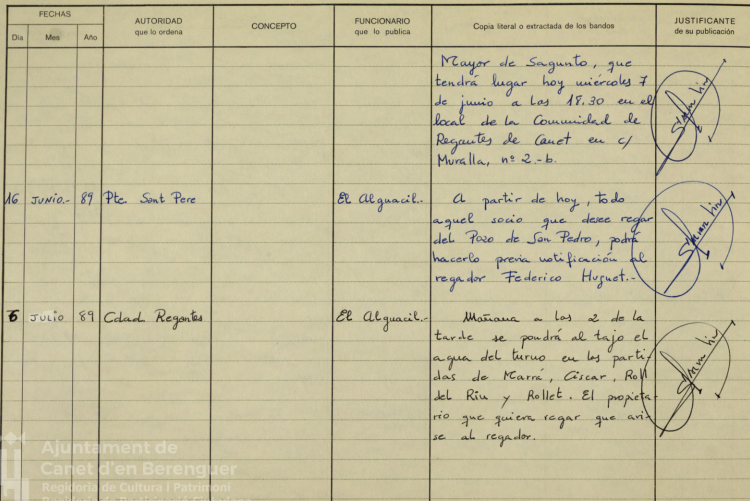 FECHAS
Día Mes Año
AUTORIDAD
que lo ordena
CONCEPTO
FUNCIONARIO
que lo publica
Copia literal o extractada de los bandos
JUSTIFICANTE
de su publicación
Mayor de Sagunto, que
tendrá lugar hoy miércoles 7
de junio a las 18.30 en el
local de la Comunidad de
Regantes de Canet en c/
Muralla, nº 2.-b.
16 JUNIO.- 89 Pte. Sant Pere El Alguacil.- A partir de hoy, todo
aquel socio que desee regar
del Pozo de San Pedro, podrá
hacerlo previa notificación al
regador Federico Huguet.-
6 JULIO 89 Cdad. Regantes El Alguacil.- Mañana a las 2 de la
tarde se pondrá al tajo el
agua del turno en las parti-
das de Marrá, Ciscar, Roll
del Riu y Rollet. El propieta-
rio que quiera regar que avi-
se al regador.
Ajuntament de
Canet d'en Berenguer
Regidoria de Cultura i Patrimoni